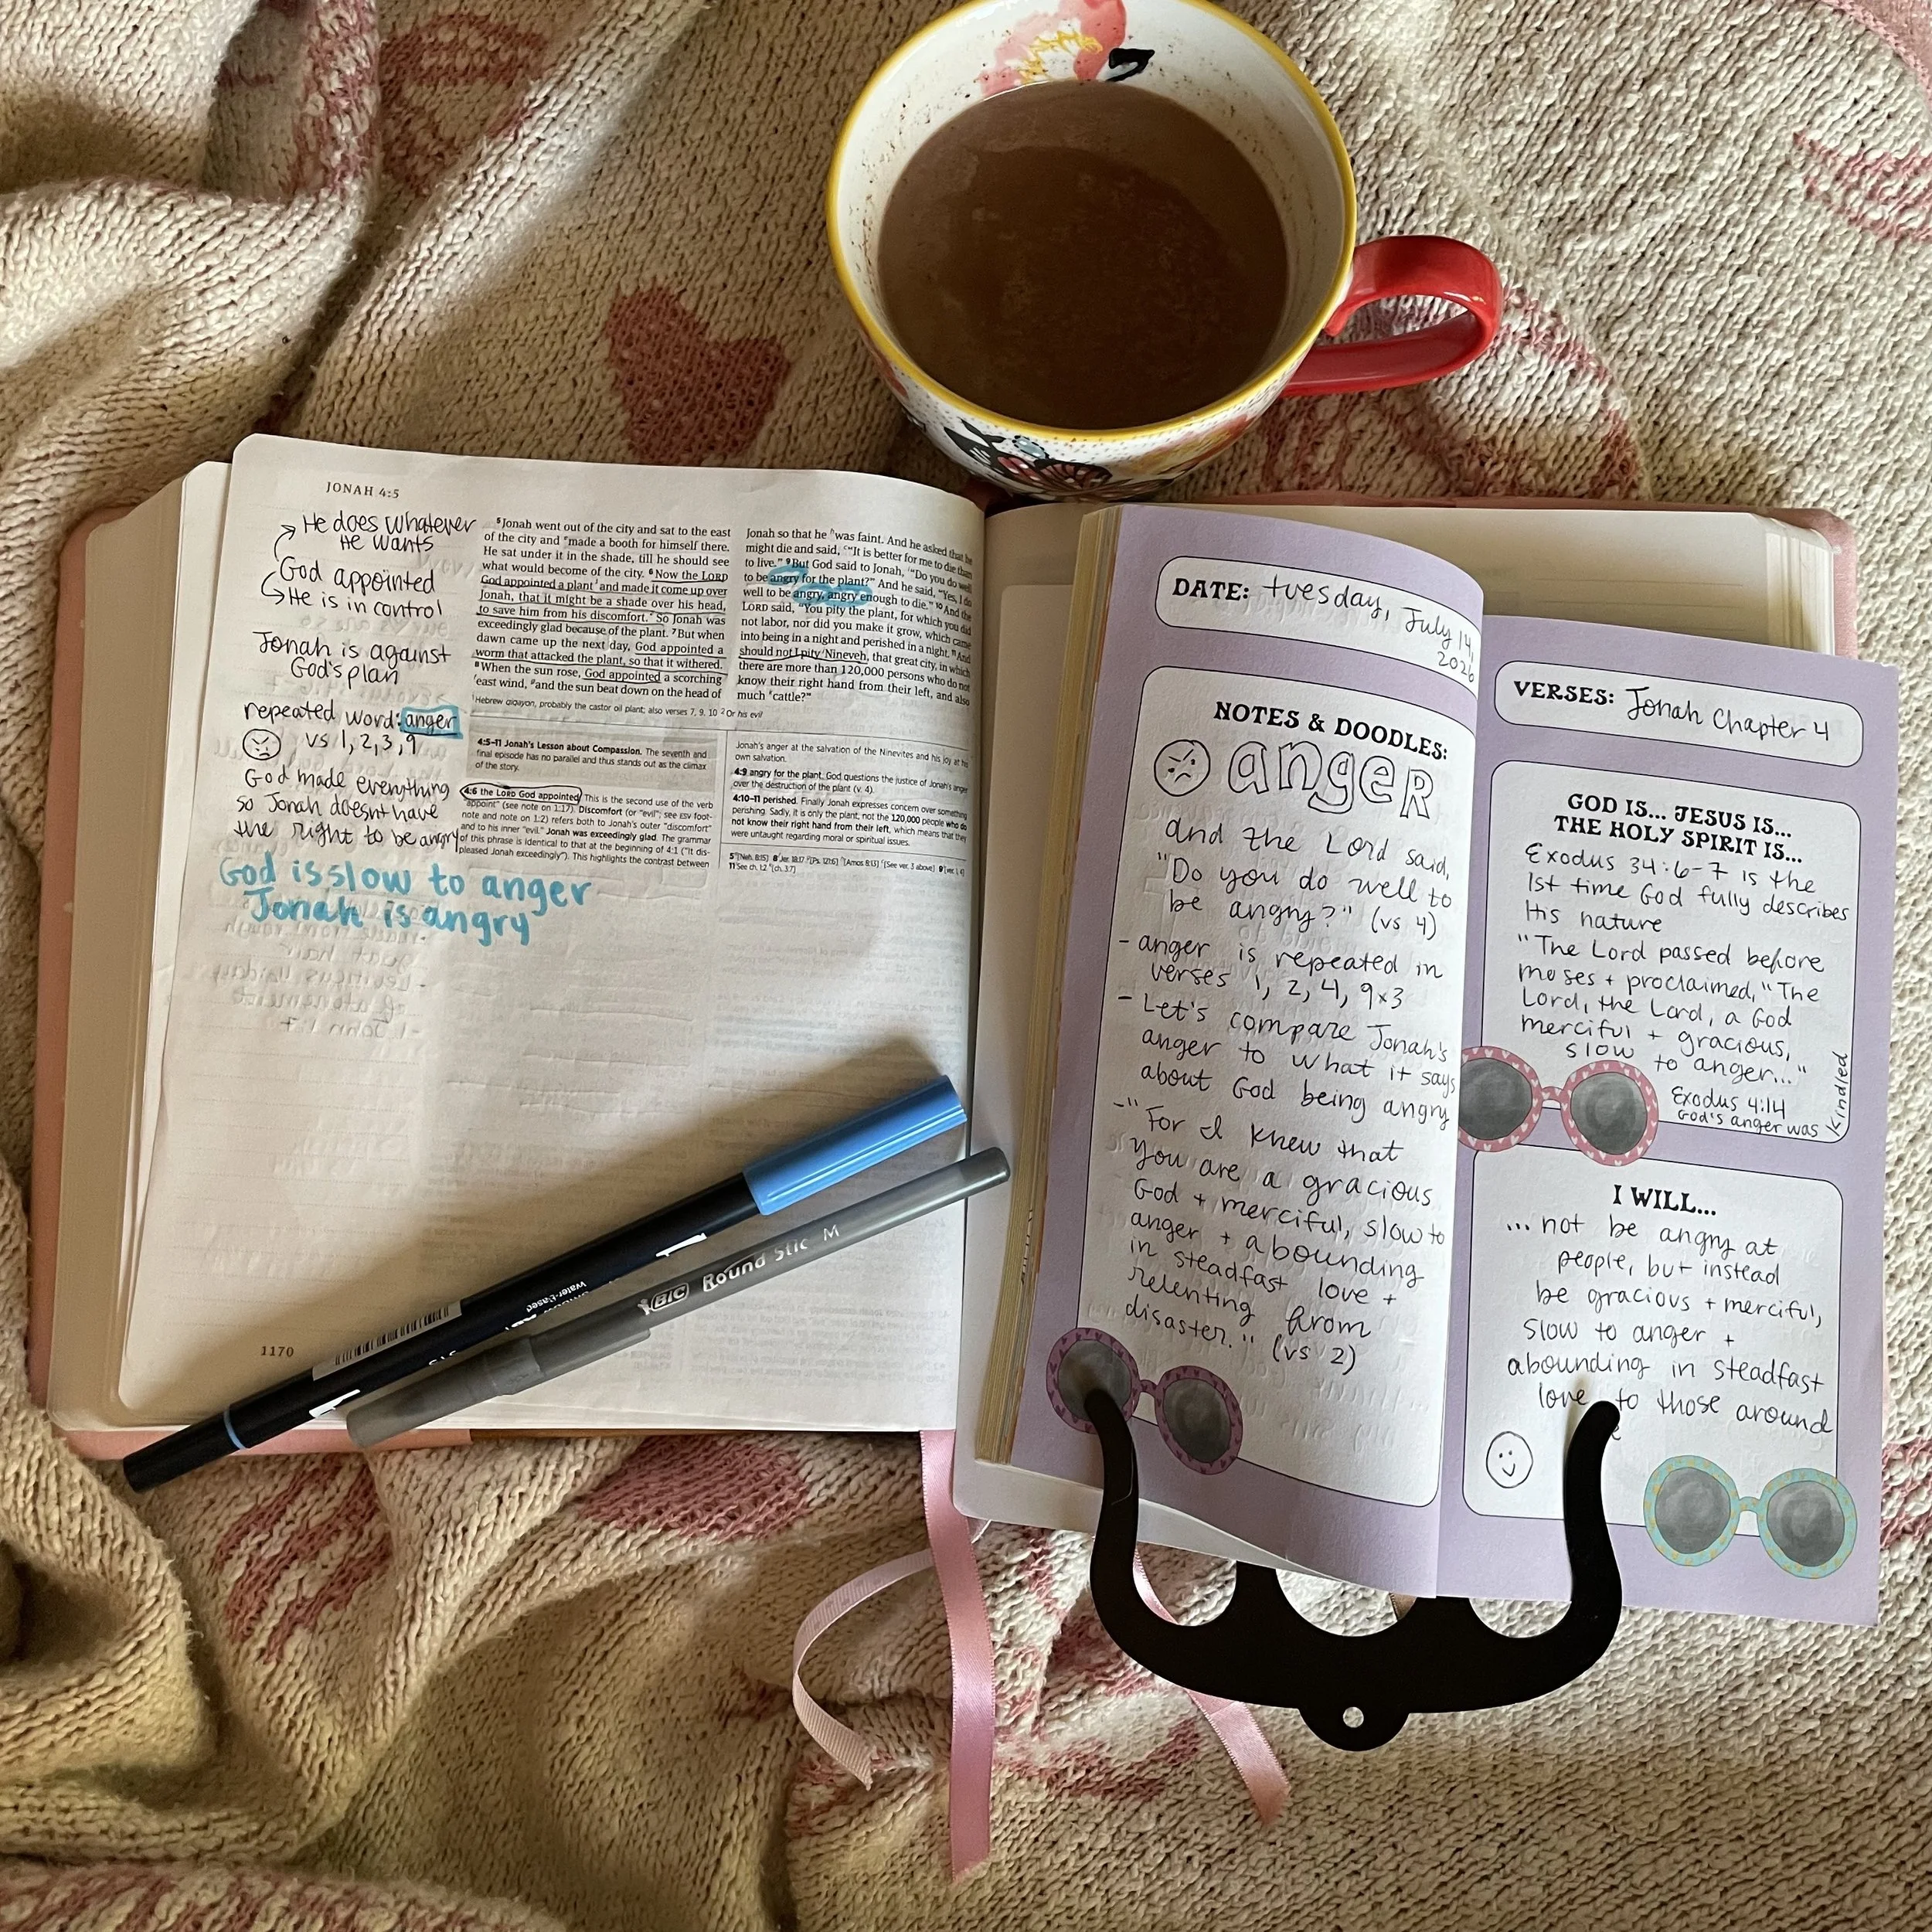 JONAH 4:5
He does whatever
He wants
God appointed
He is in control
Jonah is against
God's plan
repeated word: anger
vs 1, 2, 3, 9
God made everything
so Jonah doesn't have
the right to be angry
God is slow to anger
Jonah is angry
5Jonah went out of the city and sat to the east
of the city and made a booth for himself there.
He sat under it in the shade, till he should see
what would become of the city. 6Now the LORD
God appointed a plant and made it come up over
Jonah, that it might be a shade over his head,
to save him from his discomfort. So Jonah was
exceedingly glad because of the plant. 7But when
dawn came up the next day, God appointed a
worm that attacked the plant, so that it withered.
8When the sun rose, God appointed a scorching
east wind, and the sun beat down on the head of
Jonah so that he was faint. And he asked that he
might die and said, "It is better for me to die than
to live." 9But God said to Jonah, "Do you do well
to be angry for the plant?" And he said, "Yes, I do
well to be angry, angry enough to die." 10And the
LORD said, "You pity the plant, for which you did
not labor, nor did you make it grow, which came
into being in a night and perished in a night. 11And
should not I pity Nineveh, that great city, in which
there are more than 120,000 persons who do not
know their right hand from their left, and also
much cattle?"
1Hebrew qiqayon, probably the castor oil plant; also verses 7, 9, 10 2Or his evil
4:5–11 Jonah's Lesson about Compassion. The seventh and
final episode has no parallel and thus stands out as the climax
of the story.
4:6 the LORD God appointed. This is the second use of the verb
"appoint" (see note on 1:17). Discomfort (or "evil"; see ESV foot-
note and note on 1:2) refers both to Jonah's outer "discomfort"
and to his inner "evil." Jonah was exceedingly glad. The grammar
of this phrase is identical to that at the beginning of 4:1 ("it dis-
pleased Jonah exceedingly"). This highlights the contrast between
Jonah's anger at the salvation of the Ninevites and his joy at his
own salvation.
4:9 angry for the plant. God questions the justice of Jonah's anger
over the destruction of the plant (v. 4).
4:10–11 perished. Finally Jonah expresses concern over something
perishing. Sadly, it is only the plant, not the 120,000 people who do
not know their right hand from their left, which means that they
were untaught regarding moral or spiritual issues.
1170
Water-Based
BIC Round Stic M
DATE: tuesday, July 14,
2026
NOTES & DOODLES:
anger
and the Lord said,
"Do you do well to
be angry?" (vs 4)
- anger is repeated in
verses 1, 2, 4, 9x3
- Let's compare Jonah's
anger to what it says
about God being angry
- "For I knew that
you are a gracious
God + merciful, slow to
anger + abounding
in steadfast love +
relenting from
disaster." (vs 2)
VERSES: Jonah Chapter 4
GOD IS... JESUS IS...
THE HOLY SPIRIT IS...
Exodus 34:6-7 is the
1st time God fully describes
His nature
"The Lord passed before
moses + proclaimed, "The
Lord, the Lord, a God
merciful + gracious,
slow to anger..."
Exodus 4:14
God's anger was
kindled
I WILL...
...not be angry at
people, but instead
be gracious + merciful,
slow to anger +
abounding in steadfast
love to those around